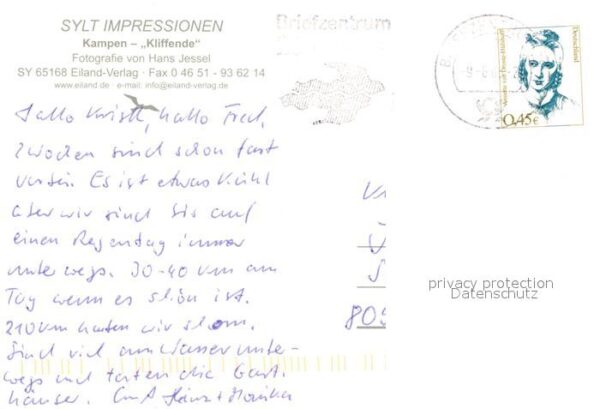 SYLT IMPRESSIONEN
Kampen – „Kliffende"
Fotografie von Hans Jessel
SY 65168 Eiland-Verlag · Fax 0 46 51 - 93 62 14
www.eiland.de e-mail: info@eiland-verlag.de
Briefzentrum
Deutschland
0,45€
Hallo Fred,
2 Wochen sind schon fast
vorbei. Es ist etwas kühl
aber wir sind bis auf
einen Regentag immer
unterwegs. 30-40 km am
Tag wenn es schön ist.
210 km hatten wir schon.
Sind viel am Wasser unter-
wegs und testen die Gast-
häuser. Gruß Heinz + Monika
805
privacy protection
Datenschutz